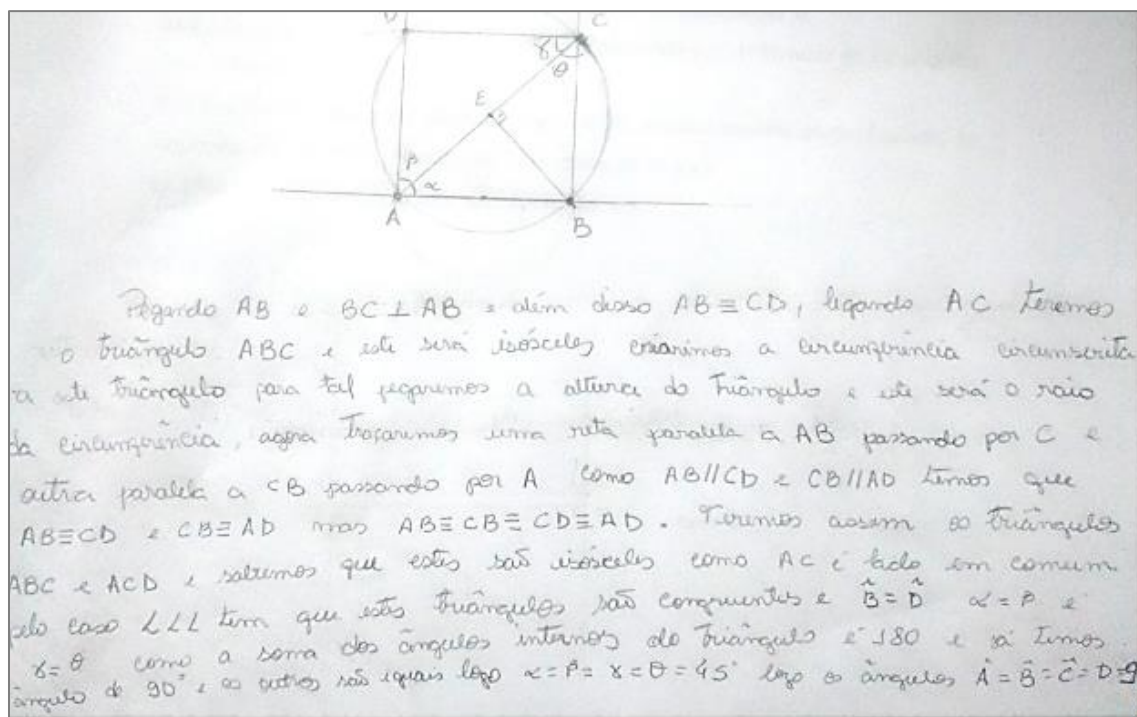 D
C
γ
θ
E
β
α
A
B
Pegando AB e BC ⊥ AB e além disso AB ≡ CD, ligando AC teremos
o triângulo ABC e este será isósceles criarimos a circunferência circunscrita
a este triângulo para tal pegaremos a altura do triângulo e este será o raio
da circunferência, agora traçaremos uma reta paralela a AB passando por C e
outra paralela a CB passando por A como AB//CD e CB//AD temos que
AB≡CD e CB≡AD mas AB≡CB≡CD≡AD. Teremos assim os triângulos
ABC e ACD e sabemos que estes são isósceles como AC é lado em comum
pelo caso LLL tem que estes triângulos são congruentes e B̂=D̂ α=β e
γ=θ como a soma dos ângulos internos do triângulo é 180 e já temos
ângulo de 90° e os outros são iguais logo α=β=γ=θ=45° logo os ângulos Â=B̂=Ĉ=D=9